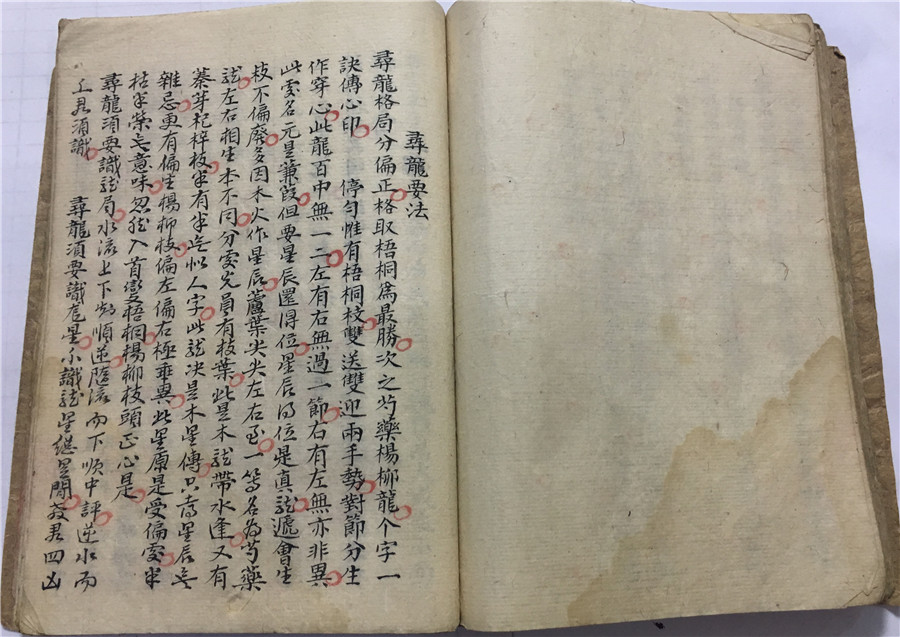 尋龍要法
尋龍格局分偏正格取梧桐為最勝次之芍藥楊柳龍个字一
訣傳心印　停勻惟有梧桐枝雙送雙迎兩手勢對節分生
作穿心此龍百中無一二左有右無過一節右有左無亦非異
此處名元是蒹葭但要星辰還得位星辰得位是真龍遞會生
枝不偏廢多因木火作星辰蘆葉尖尖左右至一等名為芍藥
龍左右相生本不同分處先員有枝葉此是木龍帶水逢又有
蓁芽杞梓枝半有半無似人字此龍决是木星傳只看星辰無
雜忌更有偏生楊柳枝偏左偏右極乖異此星原是受偏處半
枯半榮無意味忽然入首變梧桐楊柳枝頭正心是
尋龍須要識龍局水流上下知順逆隨流而下順中評逆水而
上君須識　尋龍須要識尾星不識龍星總是閒